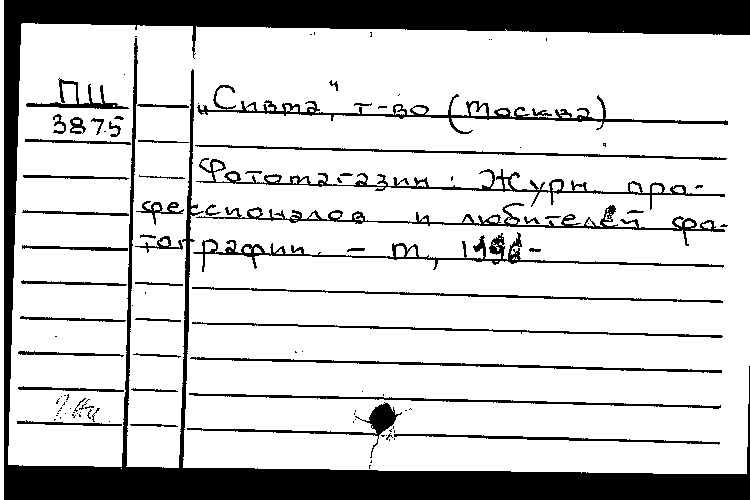 ПЦ
3875
„Сивта", т-во (Москва)
Фотомагазин : Журн про-
фессионалов и любителей фо-
тографии. - М, 199 -